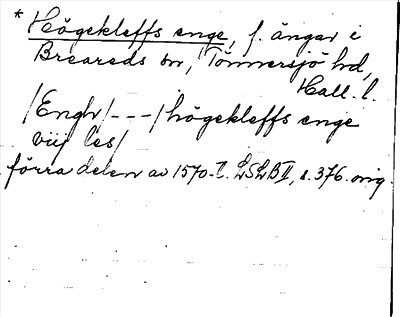 * Högekleffs enge, f. ängar i
Breareds sn, Tönnersjö hd,
Hall. l.
/Engh/---/högekleffs enge
viij les/
förra delen av 1570-t. LSLBII, s. 376. orig.